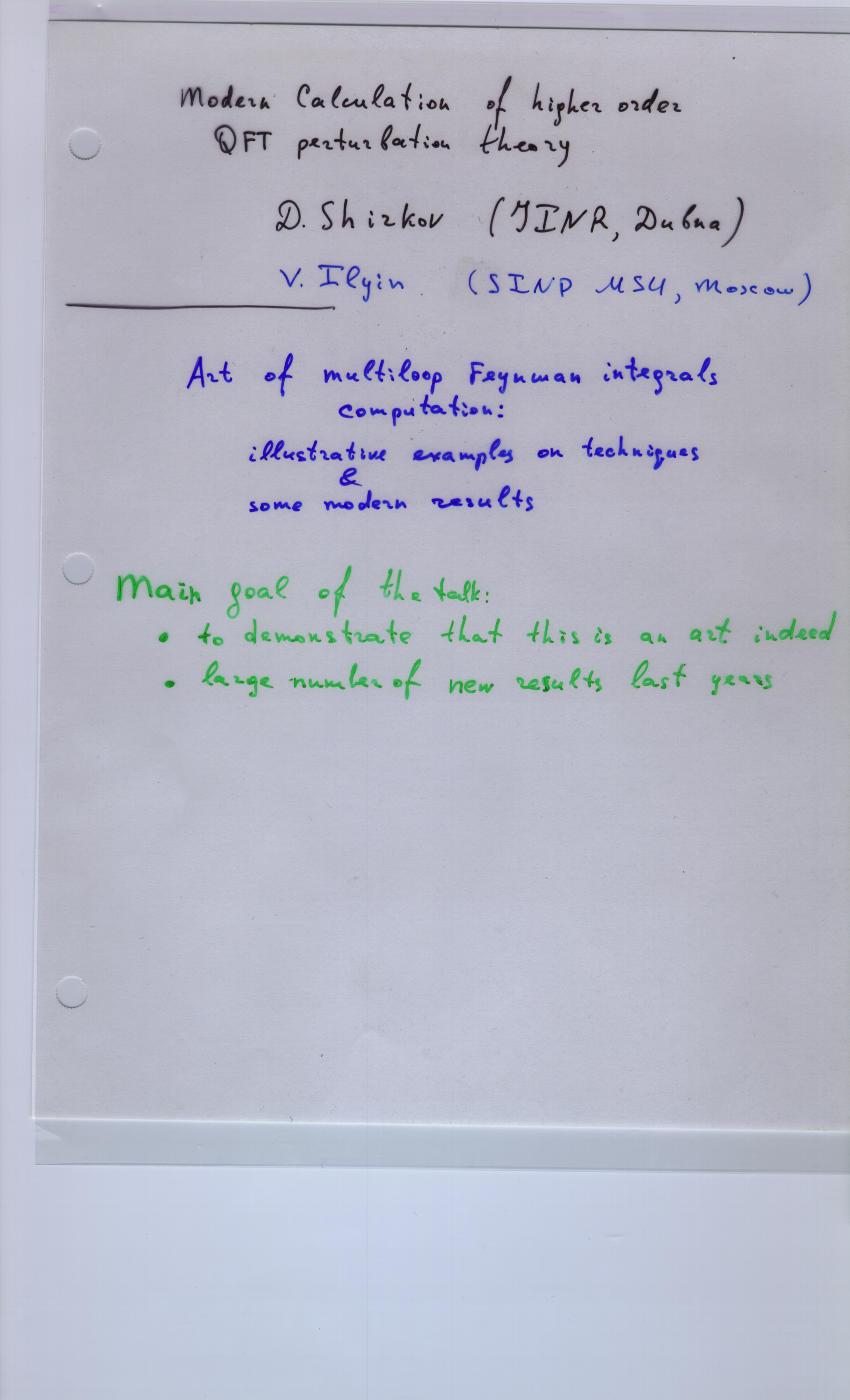 Modern Calculation of higher order
QFT perturbation theory
D. Shirkov (JINR, Dubna)
V. Ilyin (SINP MSU, Moscow)
Art of multiloop Feynman integrals
computation:
illustrative examples on techniques
&
some modern results
Main goal of the talk:
• to demonstrate that this is an art indeed
• large number of new results last years